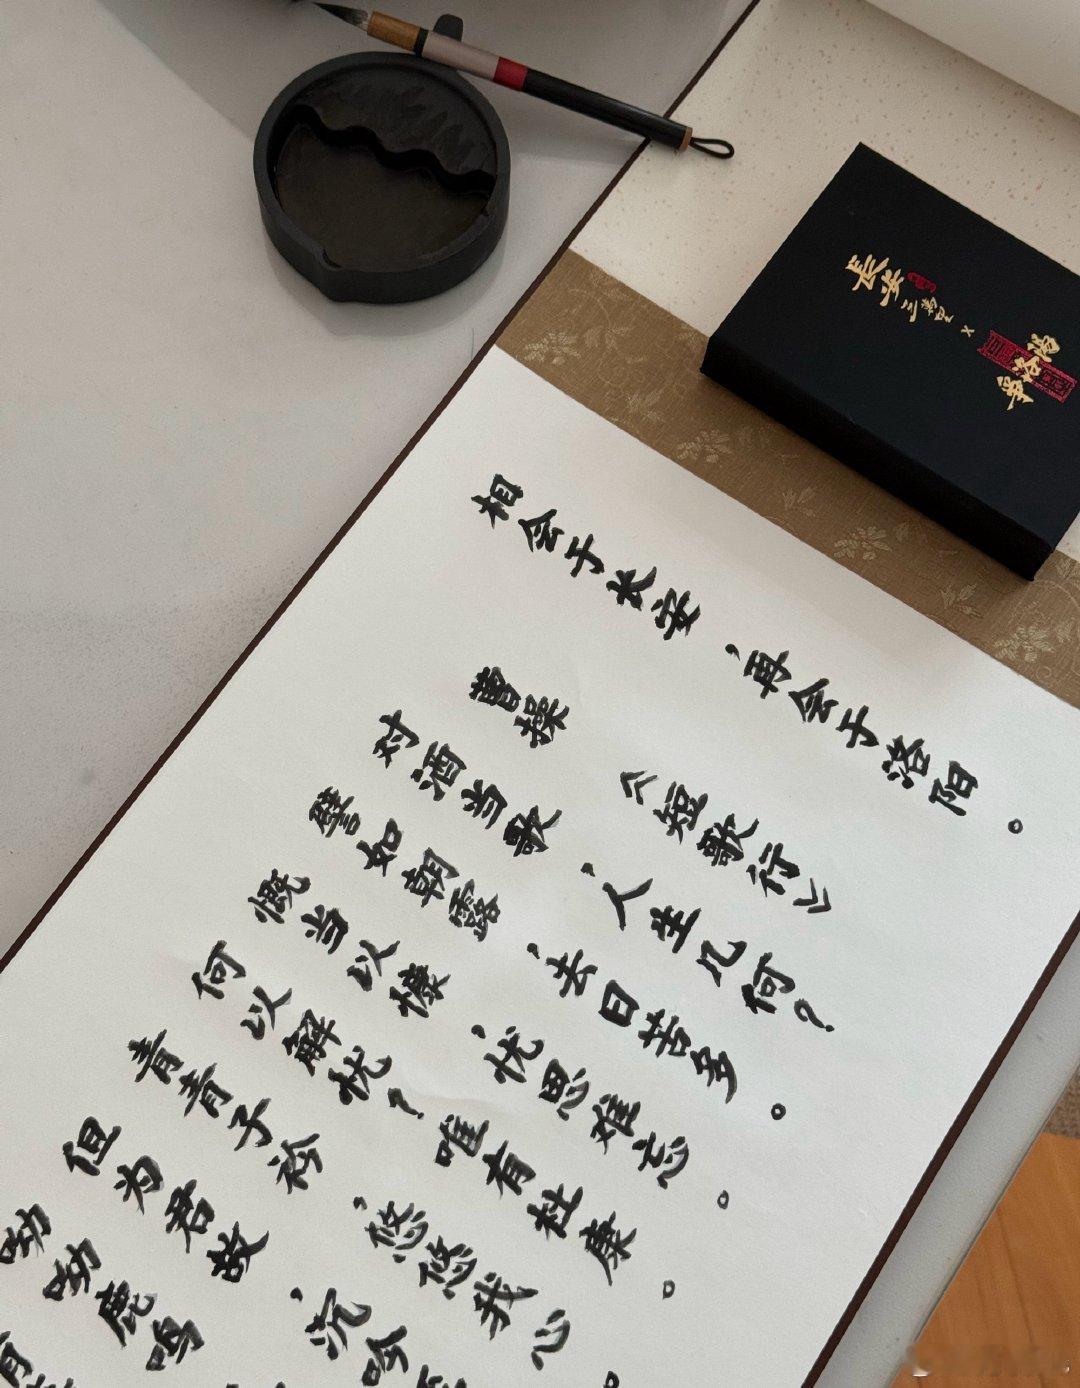 長安三萬里 x
相会于长安，再会于洛阳。
曹操 《短歌行》
对酒当歌，人生几何？
譬如朝露，去日苦多。
慨当以慷，忧思难忘。
何以解忧？唯有杜康。
青青子衿，悠悠我心。
但为君故，沉吟
呦呦鹿鸣